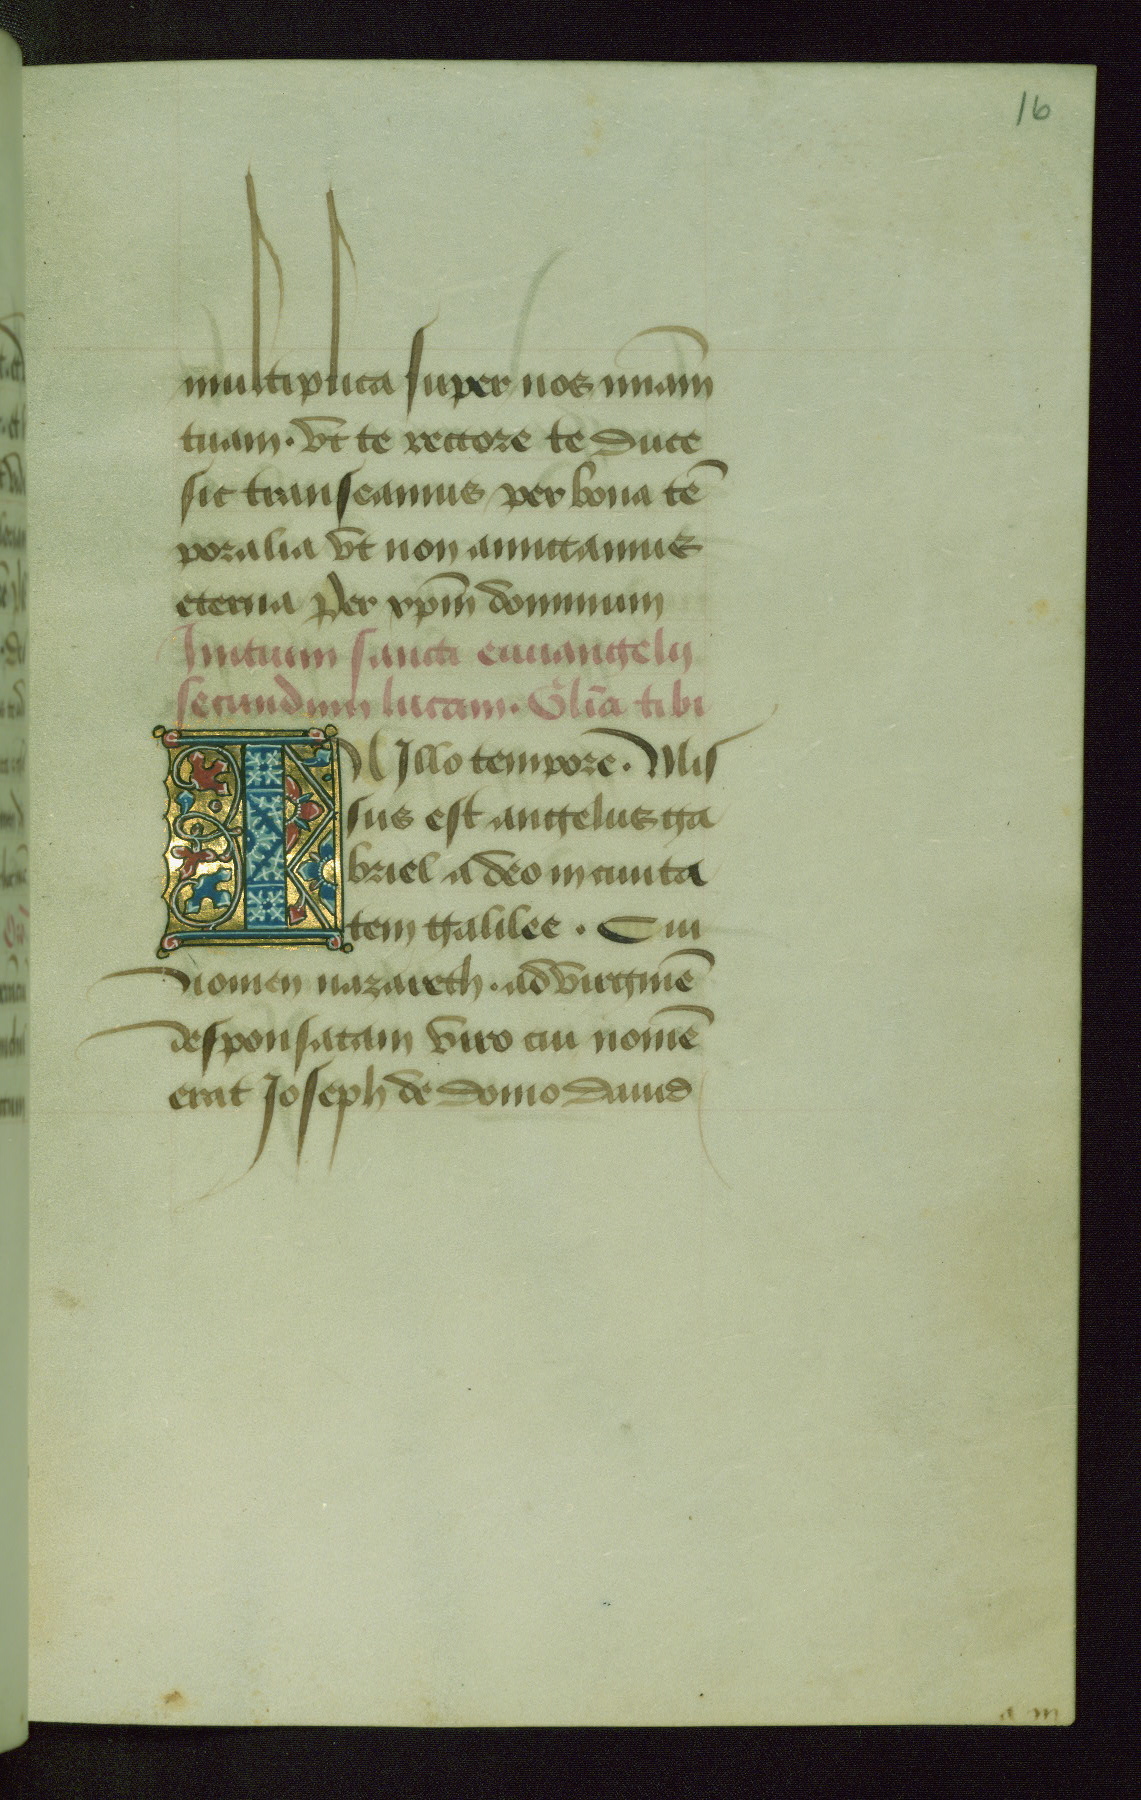 16
multiplica super nos mīam
tuam. vt te rectore te duce
sic transeamus per bona tē
poralia vt non amittamus
eterna Per xp̄m dominum
Initium sancti euuangelij
secundum lucam. Gl̄ia tibi
IN Illo tempore. Mis
sus est angelus ga
briel a deo in ciuita
tem galilee. Cui
nomen nazareth. ad virginē
desponsatam viro cui nomē
erat Joseph de domo dauid